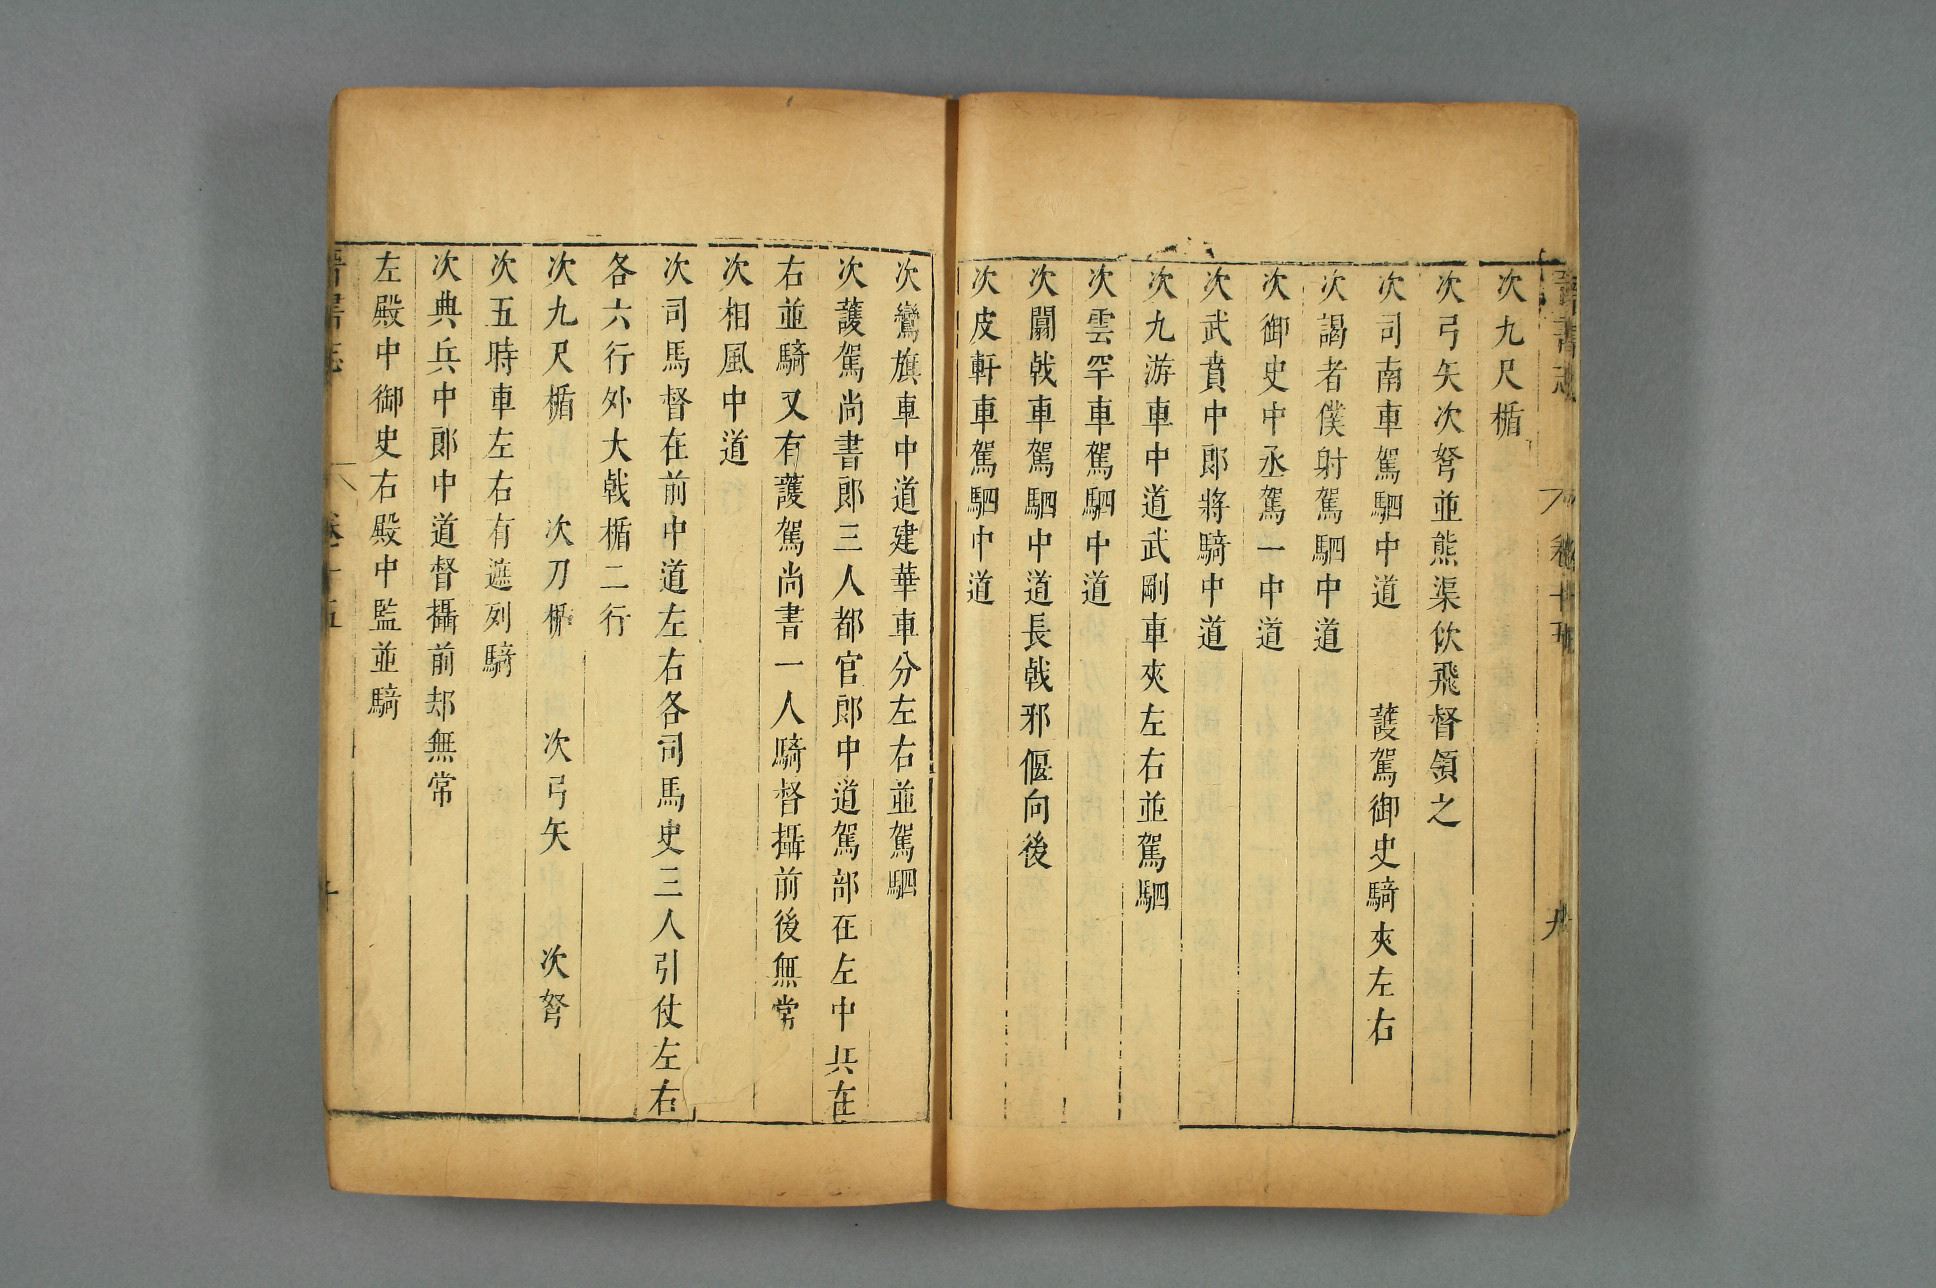 次九尺楯
次弓矢次弩並熊渠佽飛督領之
次司南車駕駟中道　　護駕御史騎夾左右
次謁者僕射駕駟中道
次御史中丞駕一中道
次武賁中郎將騎中道
次九游車中道武剛車夾左右並駕駟
次雲罕車駕駟中道
次闟戟車駕駟中道長戟邪偃向後
次皮軒車駕駟中道
次鸞旗車中道建華車分左右並駕駟
次護駕尚書郎三人都官郎中道駕部在左中兵在
右並騎又有護駕尚書一人騎督攝前後無常
次相風中道
次司馬督在前中道左右各司馬史三人引仗左右
各六行外大戟楯二行
次九尺楯　　次刀楯　　次弓矢　　次弩
次五時車左右有遮列騎
次典兵中郎中道督攝前却無常
左殿中御史右殿中監並騎
晉書志　卷十五　十